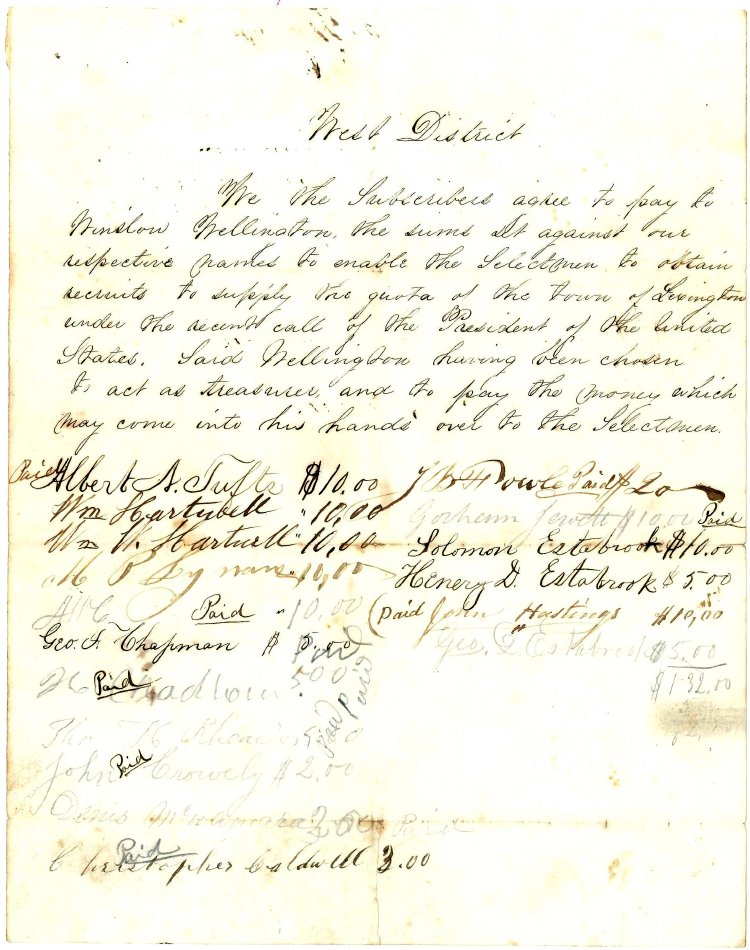 West District
We the Subscribers agree to pay to
Winslow Wellington, the sums set against our
respective names to enable the Selectmen to obtain
recruits to supply the quota of the town of Lexington
under the recent call of the President of the United
States. Said Wellington having been chosen
to act as treasurer, and to pay the money which
may come into his hands over to the Selectmen.
Paid Albert N. Tufts $10.00
Wm Hartwell " 10,00
Wm W. Hartwell " 10,00
10,00
Paid " 10,00
Geo. F. Chapman $ 5.00
Paid
H Paid 5.00
Paid
Paid
John Paid Crowely $ 2.00
Denis McNamara 2.00 Paid
Paid
Christopher Caldwell 3.00
Fowle Paid $20
Gorham Jewett $10,00 Paid
Solomon Estabrook $10.00
Henery D. Estabrook $5.00
(Paid John Hastings $10,00
Geo. D. Estabrook $5.00
$132,00